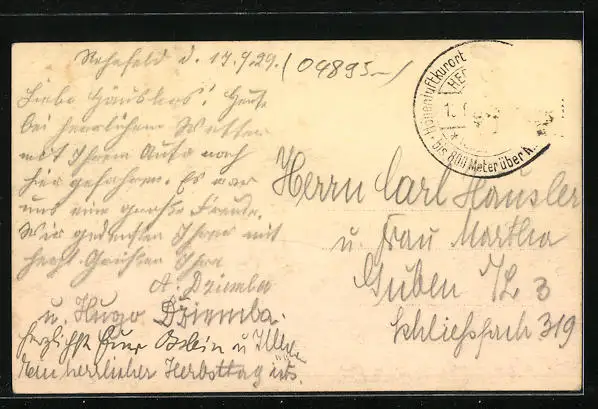 Rehefeld d. 17.9.29. (04895-)
Liebe Häuslers! Heute
bei herrlichem Wetter
mit Ihrem Auto nach
hier gefahren. Es war
uns eine große Freude.
Wir gedenken Ihrer mit
herzl. Grüßen Ihre
A. Dziemba
u. Hugo Dziemba.
Herzlichst Euer u
herrlicher Herbsttag
Höhenluftkurort
bis 800 Meter über N.
Herrn Carl Häusler
u. Frau Martha
Guben N/L 3
Schliessfach 319